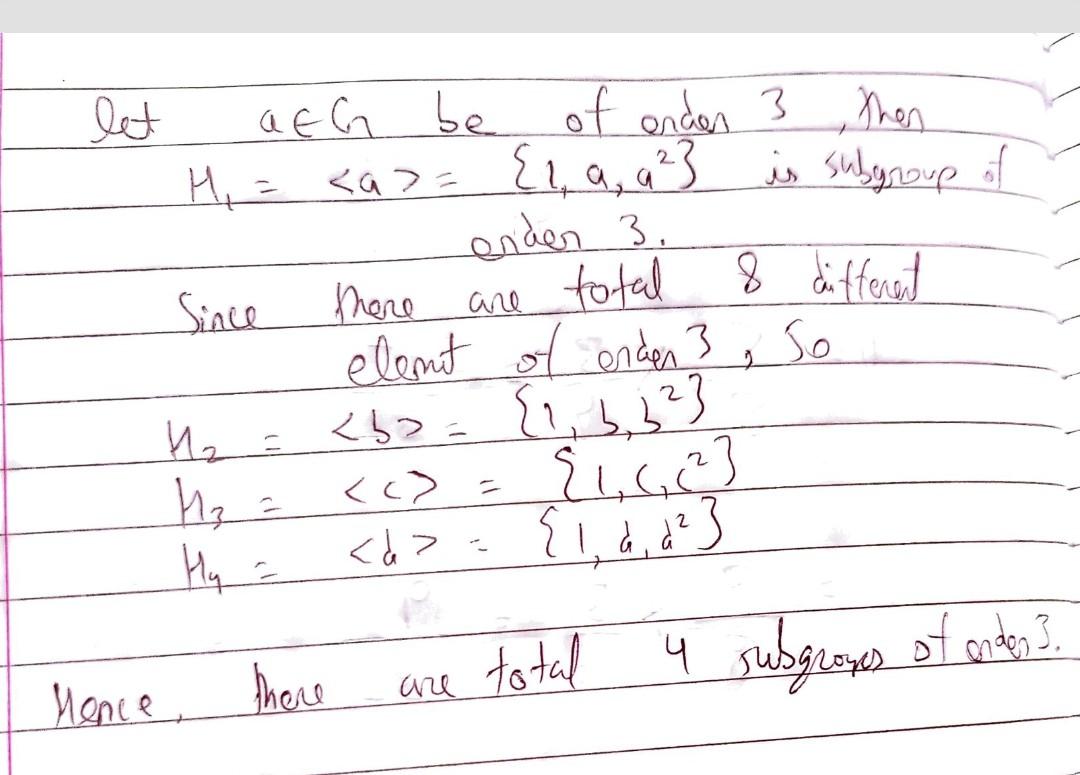 let a ∈ G be of order 3, then
H₁ = <a> = {1, a, a²} is subgroup of
order 3.
Since there are total 8 different
elemt of order 3, So
H₂ = <b> = {1, b, b²}
H₃ = <c> = {1, c, c²}
H₄ = <d> = {1, d, d²}
Hence, there are total 4 subgroups of order 3.